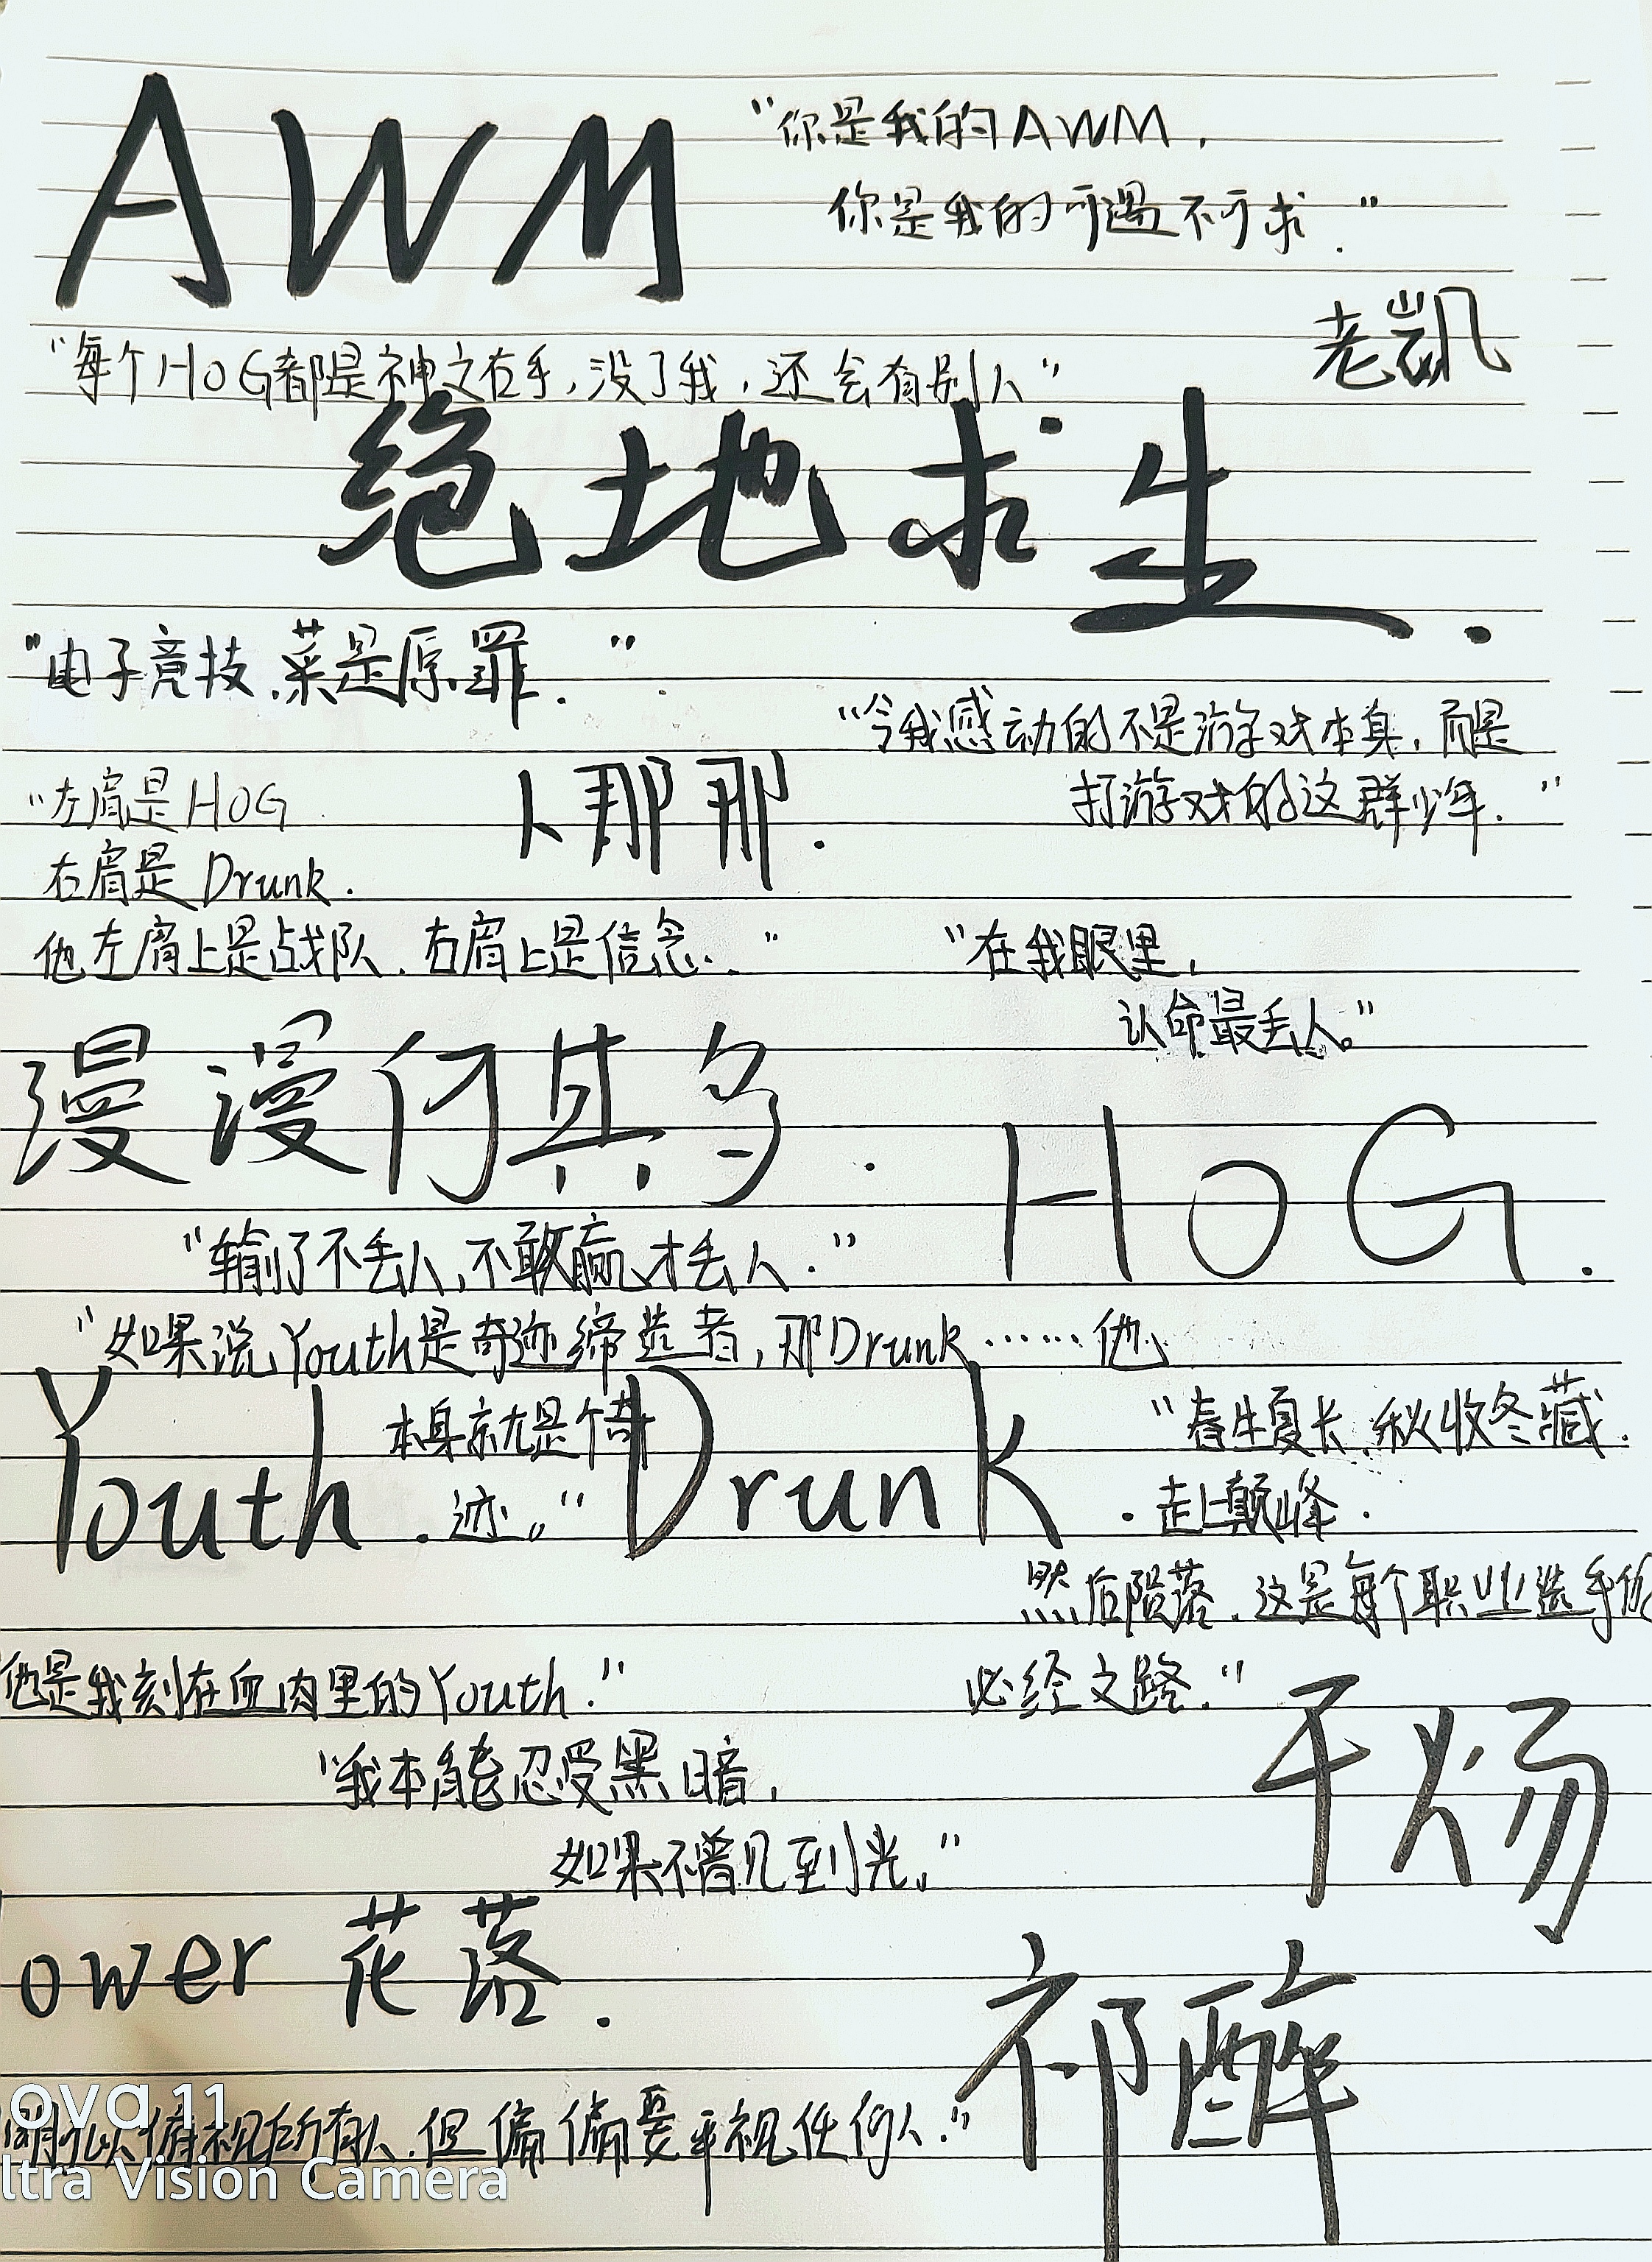 AWM
“你是我的AWM,
你是我的可遇不可求.”
老凯
“每个HOG都是神之右手,没了我,还会有别人”
绝地求生.
“电子竞技,菜是原罪.”
“令我感动的不是游戏本身,而是
打游戏的这群少年.”
卜那那.
“左肩是HOG
右肩是Drunk.
他左肩上是战队,右肩上是信念.”
“在我眼里,
认命最丢人。”
漫漫何其多.
HOG.
“输了不丢人,不敢赢才丢人.”
“如果说Youth是奇迹缔造者,那Drunk……他
本身就是个奇
迹。”
Youth.
Drunk.
“春生夏长,秋收冬藏.
走上巅峰.
然后陨落,这是每个职业选手的
必经之路.”
他是我刻在血肉里的Youth.”
“我本能忍受黑暗,
如果不曾见到光,”
于炀
ower 花落.
祁醉
明可以俯视所有人,但偏偏要平视任何人.”
ova 11
ltra Vision Camera